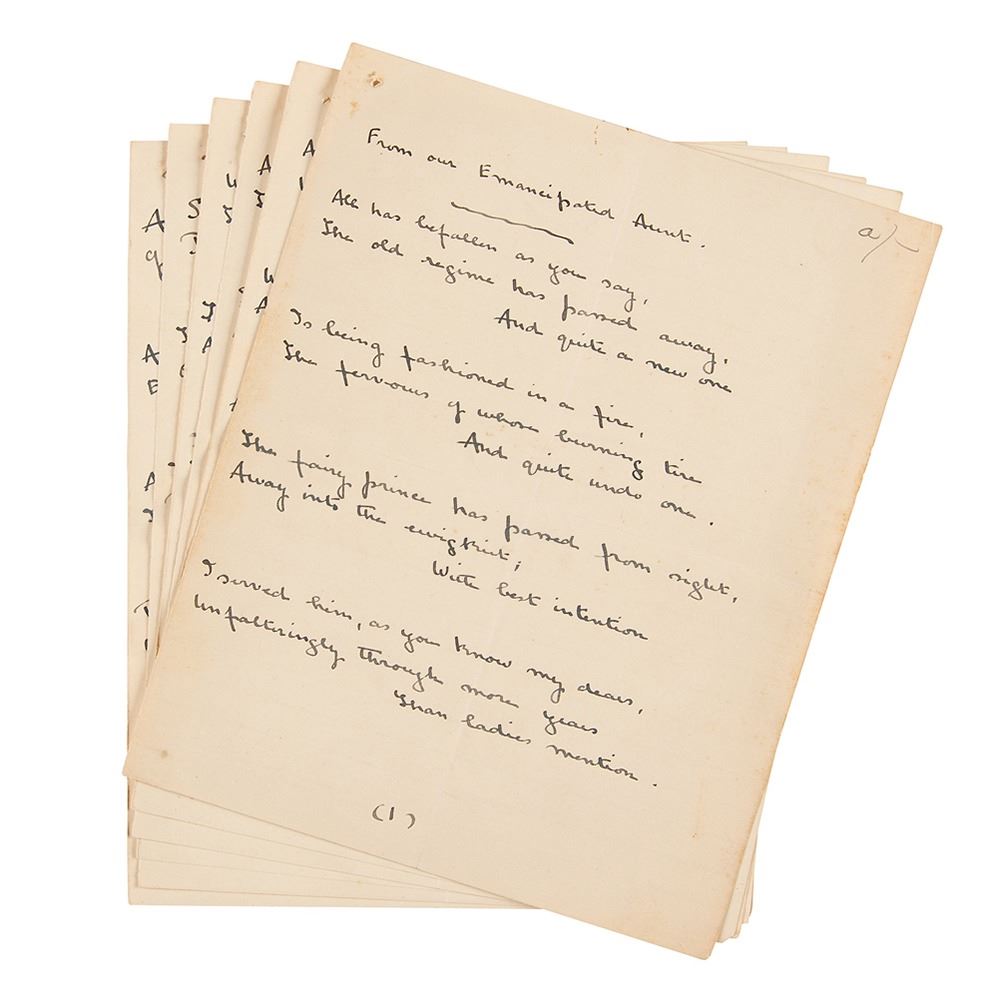 a/-
From our Emancipated Aunt.
All has befallen as you say,
The old regime has passed away,
And quite a new one
Is being fashioned in a fire,
The fervours of whose burning tire
And quite undo one.
The fairy prince has passed from sight,
Away into the ewigkeit;
With best intention
I served him, as you know my dears,
Unfalteringly through more years
Than ladies mention.
(1)